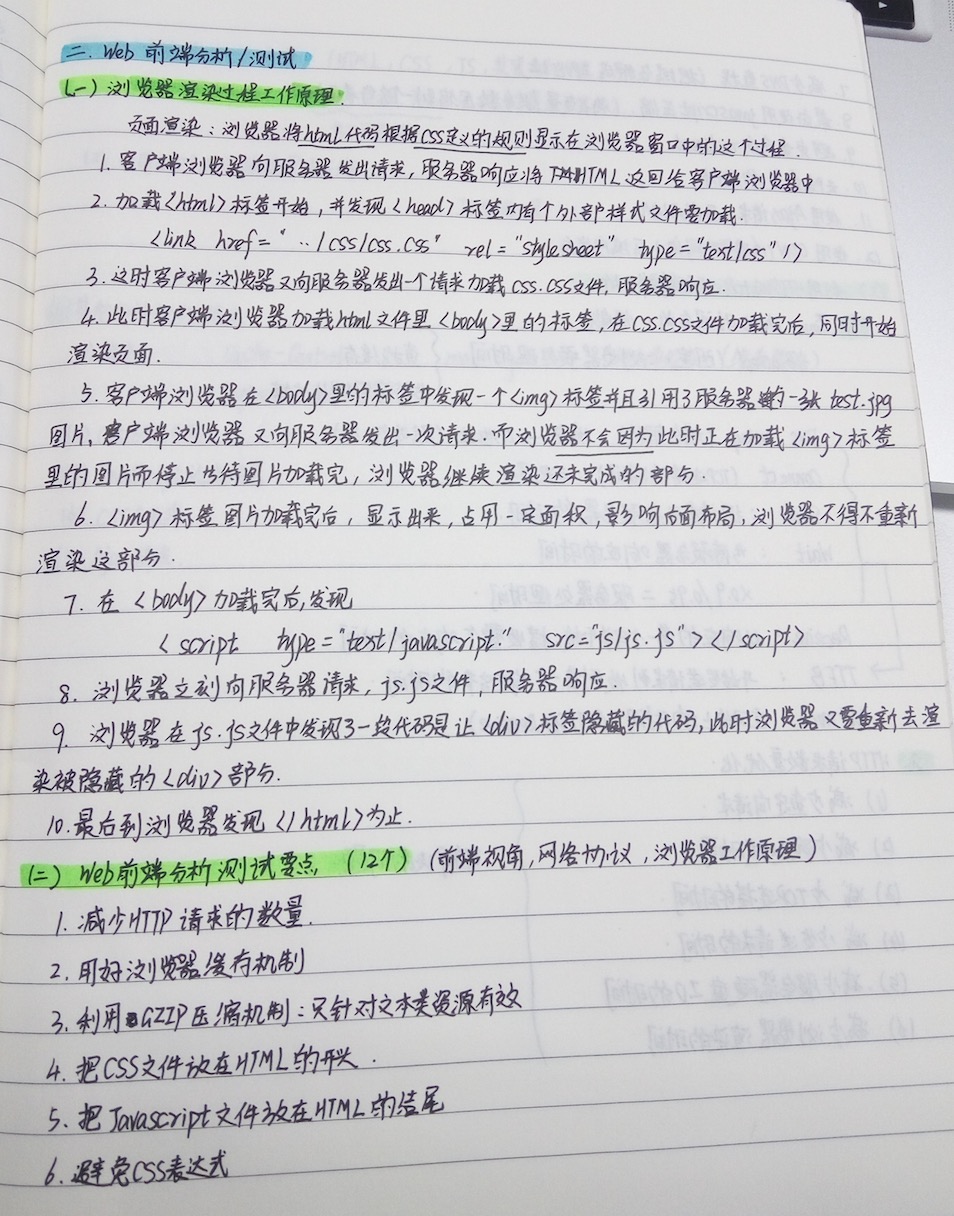 二. Web 前端分析/测试
(一) 浏览器渲染过程工作原理.
页面渲染：浏览器将html代码根据CSS定义的规则显示在浏览器窗口中的这个过程.
1. 客户端浏览器向服务器发出请求，服务器响应将HTML返回给客户端浏览器中
2. 加载<html>标签开始，并发现<head>标签内有个外部样式文件要加载.
<link href="../css/css.css" rel="stylesheet" type="text/css"/>
3. 这时客户端浏览器又向服务器发出一个请求加载css.css文件，服务器响应.
4. 此时客户端浏览器加载html文件里<body>里的标签，在css.css文件加载完后，同时开始
渲染页面.
5. 客户端浏览器在<body>里的标签中发现一个<img>标签并且引用了服务器的一张test.jpg
图片，客户端浏览器又向服务器发出一次请求. 而浏览器不会因为此时正在加载<img>标签
里的图片而停止等待图片加载完，浏览器继续渲染还未完成的部分.
6. <img>标签图片加载完后，显示出来，占用一定面积，影响后面布局，浏览器不得不重新
渲染这部分.
7. 在<body>加载完后,发现
<script type="text/javascript" src="js/js.js"></script>
8. 浏览器立刻向服务器请求，js.js文件，服务器响应.
9. 浏览器在js.js文件中发现了一段代码是让<div>标签隐藏的代码，此时浏览器又要重新去渲
染被隐藏的<div>部分.
10. 最后到浏览器发现</html>为止.
(二) Web前端分析测试要点 (12个) (前端视角，网络协议，浏览器工作原理)
1. 减少HTTP请求的数量.
2. 用好浏览器缓存机制
3. 利用GZIP压缩机制：只针对文本类资源有效
4. 把CSS文件放在HTML的开头.
5. 把Javascript文件放在HTML的结尾
6. 避免CSS表达式